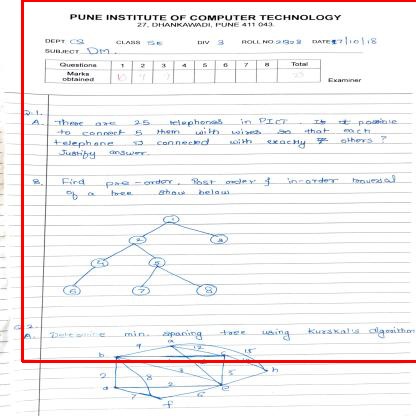 PUNE INSTITUTE OF COMPUTER TECHNOLOGY
27, DHANKAWADI, PUNE 411 043.
DEPT CS CLASS SE DIV 3 ROLL NO DATE 17/10/18
SUBJECT DM.
Questions 1 2 3 4 5 6 7 8 Total
Marks obtained
Examiner
Q.1.
A. There are 25 telephones in PICT. Is it possible
to connect 5 them with wires so that each
telephone is connected with exactly 7 others ?
Justify answer.
B. Find pre-order, Post order & in-order traversal
of a tree show below
1
2 3
4 5
6 7 8
Q.2.
A. Determine min. spaning tree using Kurskal's algorithm
a
9 12 15
b
h
2 8 3 5
d 2 e
7 6
f